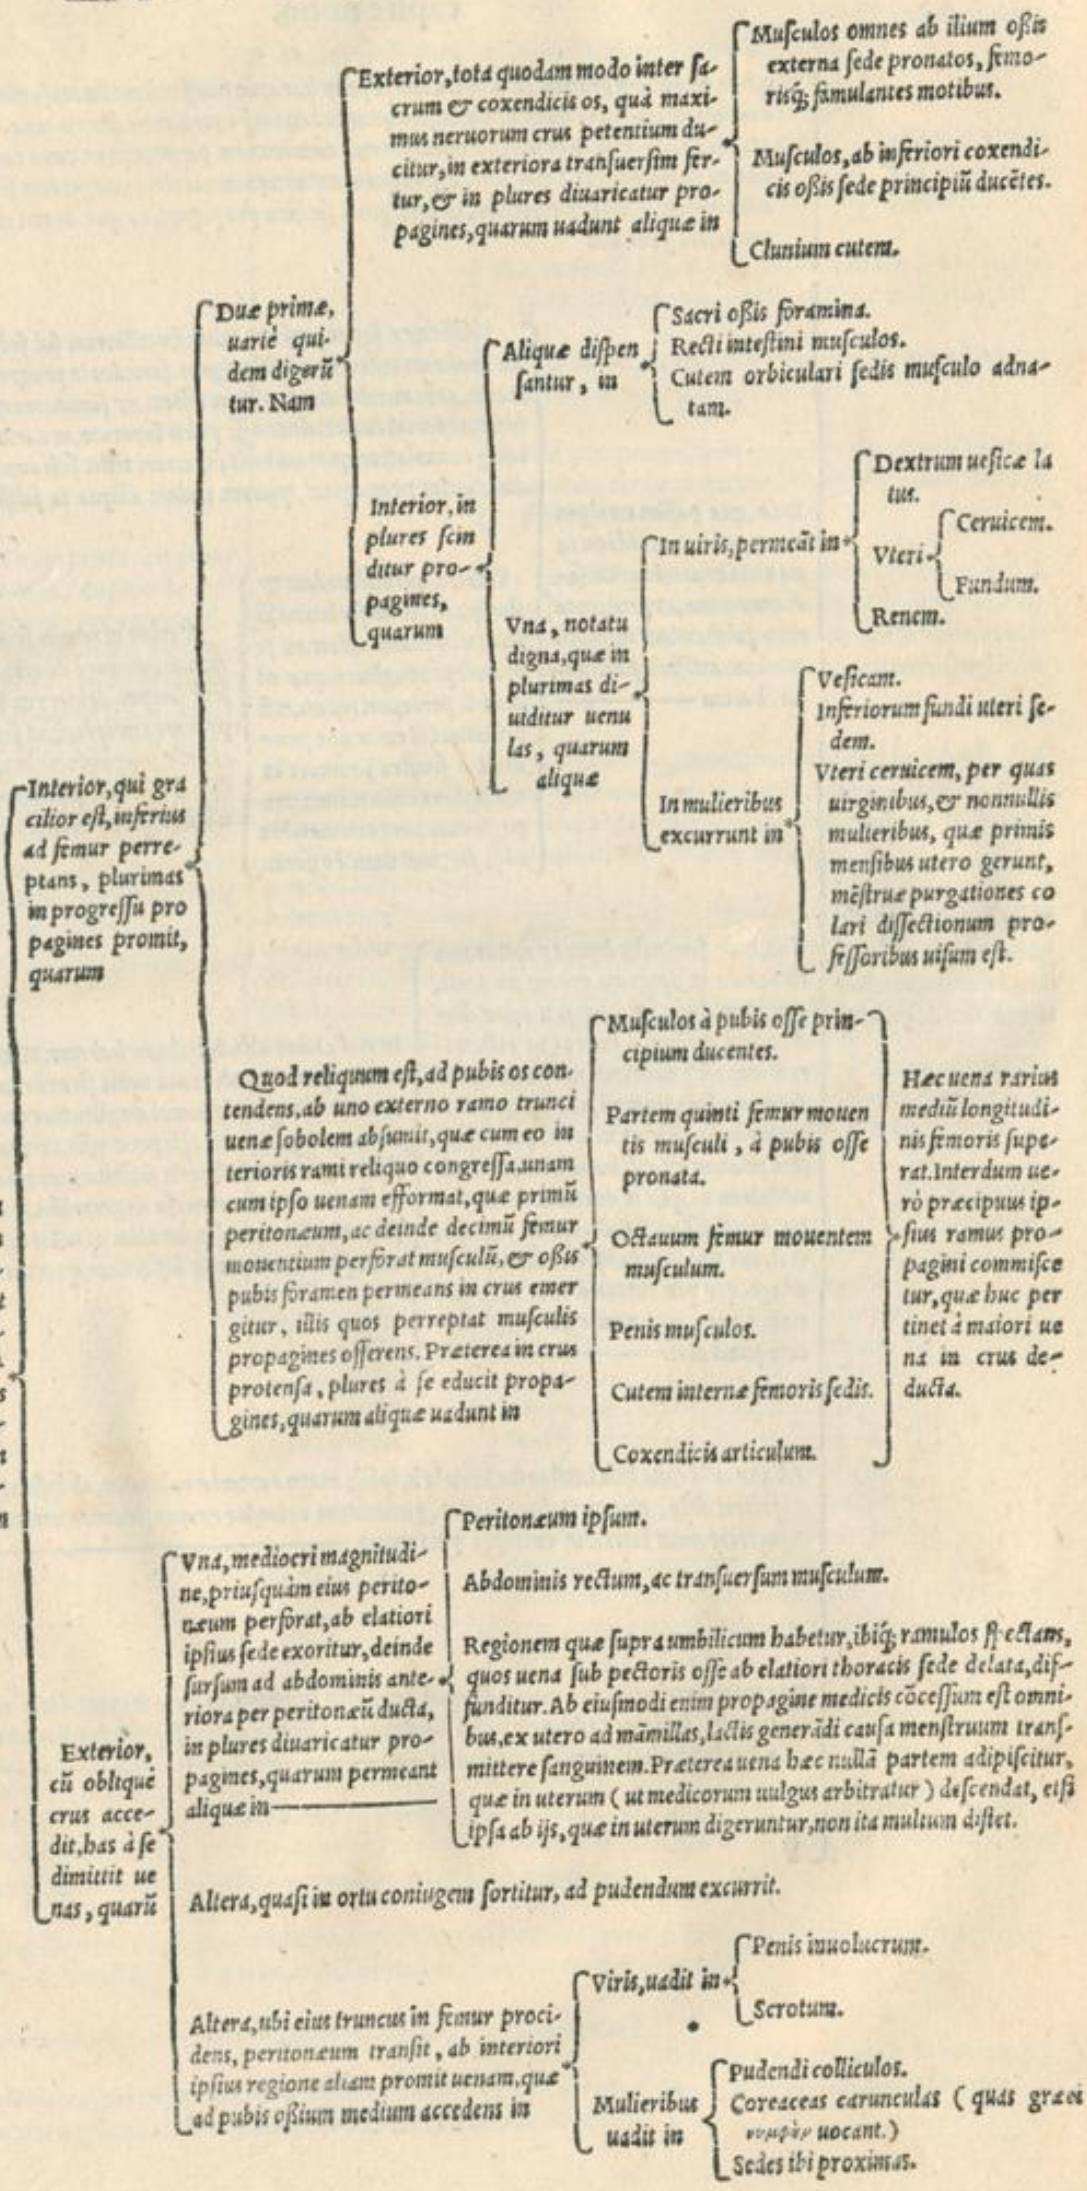 Exterior, tota quodam modo inter ſa-
crum & coxendicis os, quà maxi-
mus neruorum crus petentium du-
citur, in exteriora tranſuerſim fer-
tur, & in plures diuaricatur pro-
pagines, quarum uadunt aliquæ in
Muſculos omnes ab ilium oſsis
externa ſede pronatos, femo-
risq́; famulantes motibus.
Muſculos, ab inferiori coxendi-
cis oſsis ſede principiũ ducẽtes.
Clunium cutem.
Duæ primæ,
uariè qui-
dem digerũ
tur. Nam
Aliquæ diſpen
ſantur, in
Sacri oſsis foramina.
Recti inteſtini muſculos.
Cutem orbiculari ſedis muſculo adna-
tam.
Interior, in
plures ſcin
ditur pro-
pagines,
quarum
Vna, notatu
digna, quæ in
plurimas di-
uiditur uenu
las, quarum
aliquæ
In uiris, permeãt in
Dextrum ueſicæ la
tus.
Vteri
Ceruicem.
Fundum.
Renem.
In mulieribus
excurrunt in
Veſicam.
Inferiorum fundi uteri ſe-
dem.
Vteri ceruicem, per quas
uirginibus, & nonnullis
mulieribus, quæ primis
menſibus utero gerunt,
mẽſtruæ purgationes co
lari diſſectionum pro-
feſſoribus uiſum eſt.
Interior, qui gra
cilior eſt, inferius
ad femur perre-
ptans, plurimas
in progreſſu pro
pagines promit,
quarum
Quod reliquum eſt, ad pubis os con-
tendens, ab uno externo ramo trunci
uenæ ſobolem abſumit, quæ cum eo in
terioris rami reliquo congreſſa, unam
cum ipſo uenam efformat, quæ primũ
peritonæum, ac deinde decimũ femur
mouentium perforat muſculũ, & oſsis
pubis foramen permeans in crus emer
gitur, illis quos perreptat muſculis
propagines offerens. Præterea in crus
protenſa, plures à ſe educit propa-
gines, quarum aliquæ uadunt in
Muſculos à pubis oſſe prin-
cipium ducentes.
Partem quinti femur mouen
tis muſculi, à pubis oſſe
pronata.
Octauum femur mouentem
muſculum.
Penis muſculos.
Cutem internæ femoris ſedis.
Coxendicis articulum.
Hæc uena rarius
mediũ longitudi-
nis femoris ſupe-
rat. Interdum ue-
rò præcipuus ip-
ſius ramus pro-
pagini commiſce
tur, quæ huc per
tinet à maiori ue
na in crus de-
ducta.
Exterior,
cũ obliquè
crus acce-
dit, has à ſe
dimittit ue
nas, quarũ
Vna, mediocri magnitudi-
ne, priuſquàm eius perito-
næum perforat, ab elatiori
ipſius ſede exoritur, deinde
ſurſum ad abdominis ante-
riora per peritonæũ ducta,
in plures diuaricatur pro-
pagines, quarum permeant
aliquæ in
Peritonæum ipſum.
Abdominis rectum, ac tranſuerſum muſculum.
Regionem quæ ſupra umbilicum habetur, ibiq́; ramulos ſpectans,
quos uena ſub pectoris oſſe ab elatiori thoracis ſede delata, dif-
funditur. Ab eiuſmodi enim propagine medicis cõceſſum eſt omni-
bus, ex utero ad mãmillas, lactis generãdi cauſa menſtruum tranſ-
mittere ſanguinem. Præterea uena hæc nullã partem adipiſcitur,
quæ in uterum ( ut medicorum uulgus arbitratur ) deſcendat, etſi
ipſa ab ijs, quæ in uterum digeruntur, non ita multum diſtet.
Altera, quaſi in ortu coniugem ſortitur, ad pudendum excurrit.
Altera, ubi eius truncus in femur proci-
dens, peritonæum tranſit, ab interiori
ipſius regione aliam promit uenam, quæ
ad pubis oſsium medium accedens in
Viris, uadit in
Penis inuolucrum.
Scrotum.
Mulieribus
uadit in
Pudendi colliculos.
Coreaceas carunculas ( quas græci
uocant.)
Sedes ibi proximas.